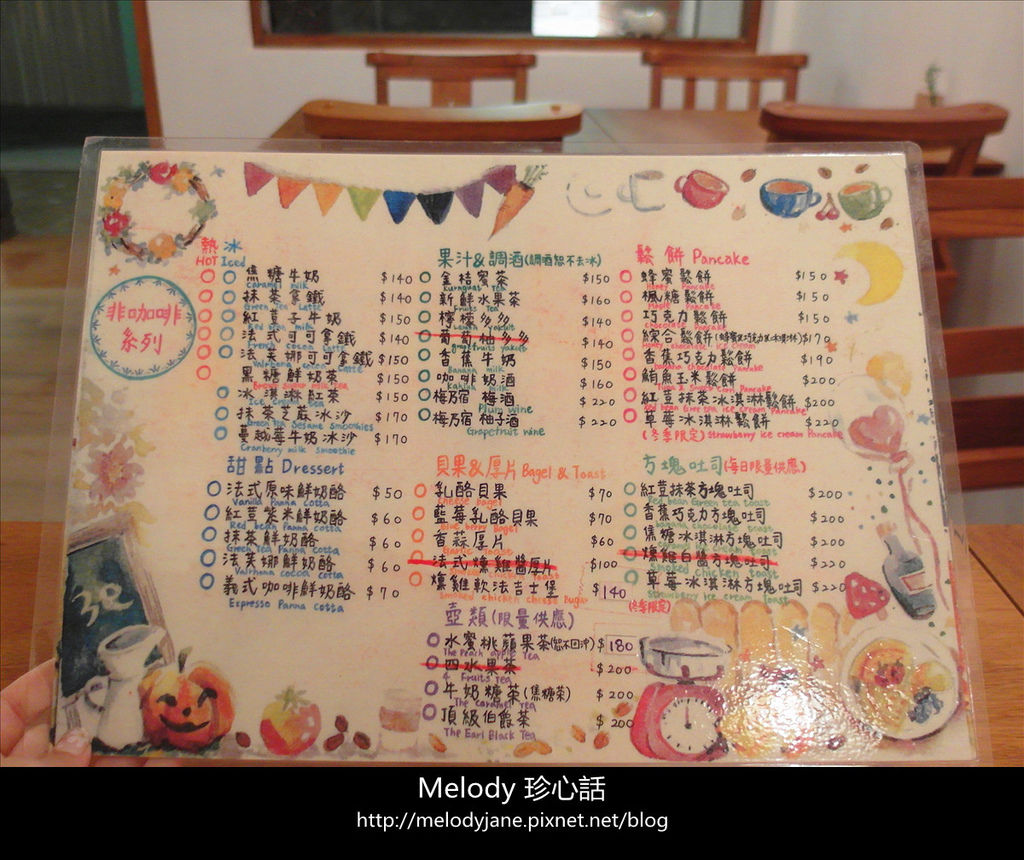 熱 冰
HOT Iced
非咖啡
系列
焦糖牛奶 $140
caramel milk
抹茶拿鐵 $140
Green Tea Latte
紅荳牛奶 $150
Red bean milk
法式可可拿鐵 $140
French cocoa Latte
法芙娜可可拿鐵 $150
Valrhona cocoa Latte
黑糖鮮奶茶 $150
Brown sugar milk tea
冰淇淋紅茶 $150
Ice cream tea
抹茶芝麻冰沙 $170
Green Tea Sesame smoothies
蔓越莓牛奶冰沙 $170
Cranberry milk smoothie
果汁&調酒(調酒恕不去冰)
金桔蜜茶 $150
Kumquat Tea
新鮮水果茶 $160
Fruits Tea
檸檬多多 $140
Lemon Yakult
葡萄柚多多 $140
grapefruits yakult
香蕉牛奶 $150
Banana milk
咖啡奶酒 $160
Kahlua milk
梅乃宿 梅酒 $220
Plum wine
梅乃宿 柚子酒 $220
Grapefruit wine
鬆餅 Pancake
蜂蜜鬆餅 $150
Honey Pancake
楓糖鬆餅 $150
Maple Pancake
巧克力鬆餅 $150
chocolate Pancake
綜合鬆餅(蜂蜜or巧克力+冰淇淋) $170
Honey / chocolate ice cream
香蕉巧克力鬆餅 $190
Banana chocolate Pancake
鮪魚玉米鬆餅 $200
紅荳抹茶冰淇淋鬆餅 $200
Red bean Gree tea ice cream Pancake
草莓冰淇淋鬆餅 $220
(冬季限定) strawberry ice cream Pancake
甜點 Dressert
法式原味鮮奶酪 $50
Vanilla Panna Cotta
紅荳紫米鮮奶酪 $60
Red bean Panna cotta
抹茶鮮奶酪 $60
Green Tea Panna cotta
法芙娜鮮奶酪 $60
Valrhona cocoa cotta
義式咖啡鮮奶酪 $70
Expresso Panna cotta
貝果&厚片 Bagel & Toast
乳酪貝果 $70
cheese Bagel
藍莓乳酪貝果 $70
Blue berry Bagel
香蒜厚片 $60
Garlic Toast
法式燻雞醬厚片 $100
燻雞軟法吉士堡 $140
Smoked chicken cheese Bugar
方塊吐司(每日限量供應)
紅荳抹茶方塊吐司 $200
Red bean Green tea toast
香蕉巧克力方塊吐司 $200
Banana chocolate toast
焦糖冰淇淋方塊吐司 $200
燻雞白醬方塊吐司 $220
Smoked chicken Toast
草莓冰淇淋方塊吐司 $220
(冬季限定) Strawberry ice cream Toast
壺類(限量供應)
水蜜桃蘋果茶(恕不回沖) $180
The Peach apple Tea
四水果茶 $200
4 Fruits Tea
牛奶糖茶(焦糖茶) $200
The caramel Tea
頂級伯爵茶 $200
The Earl Black Tea
Melody 珍心話
http://melodyjane.pixnet.net/blog